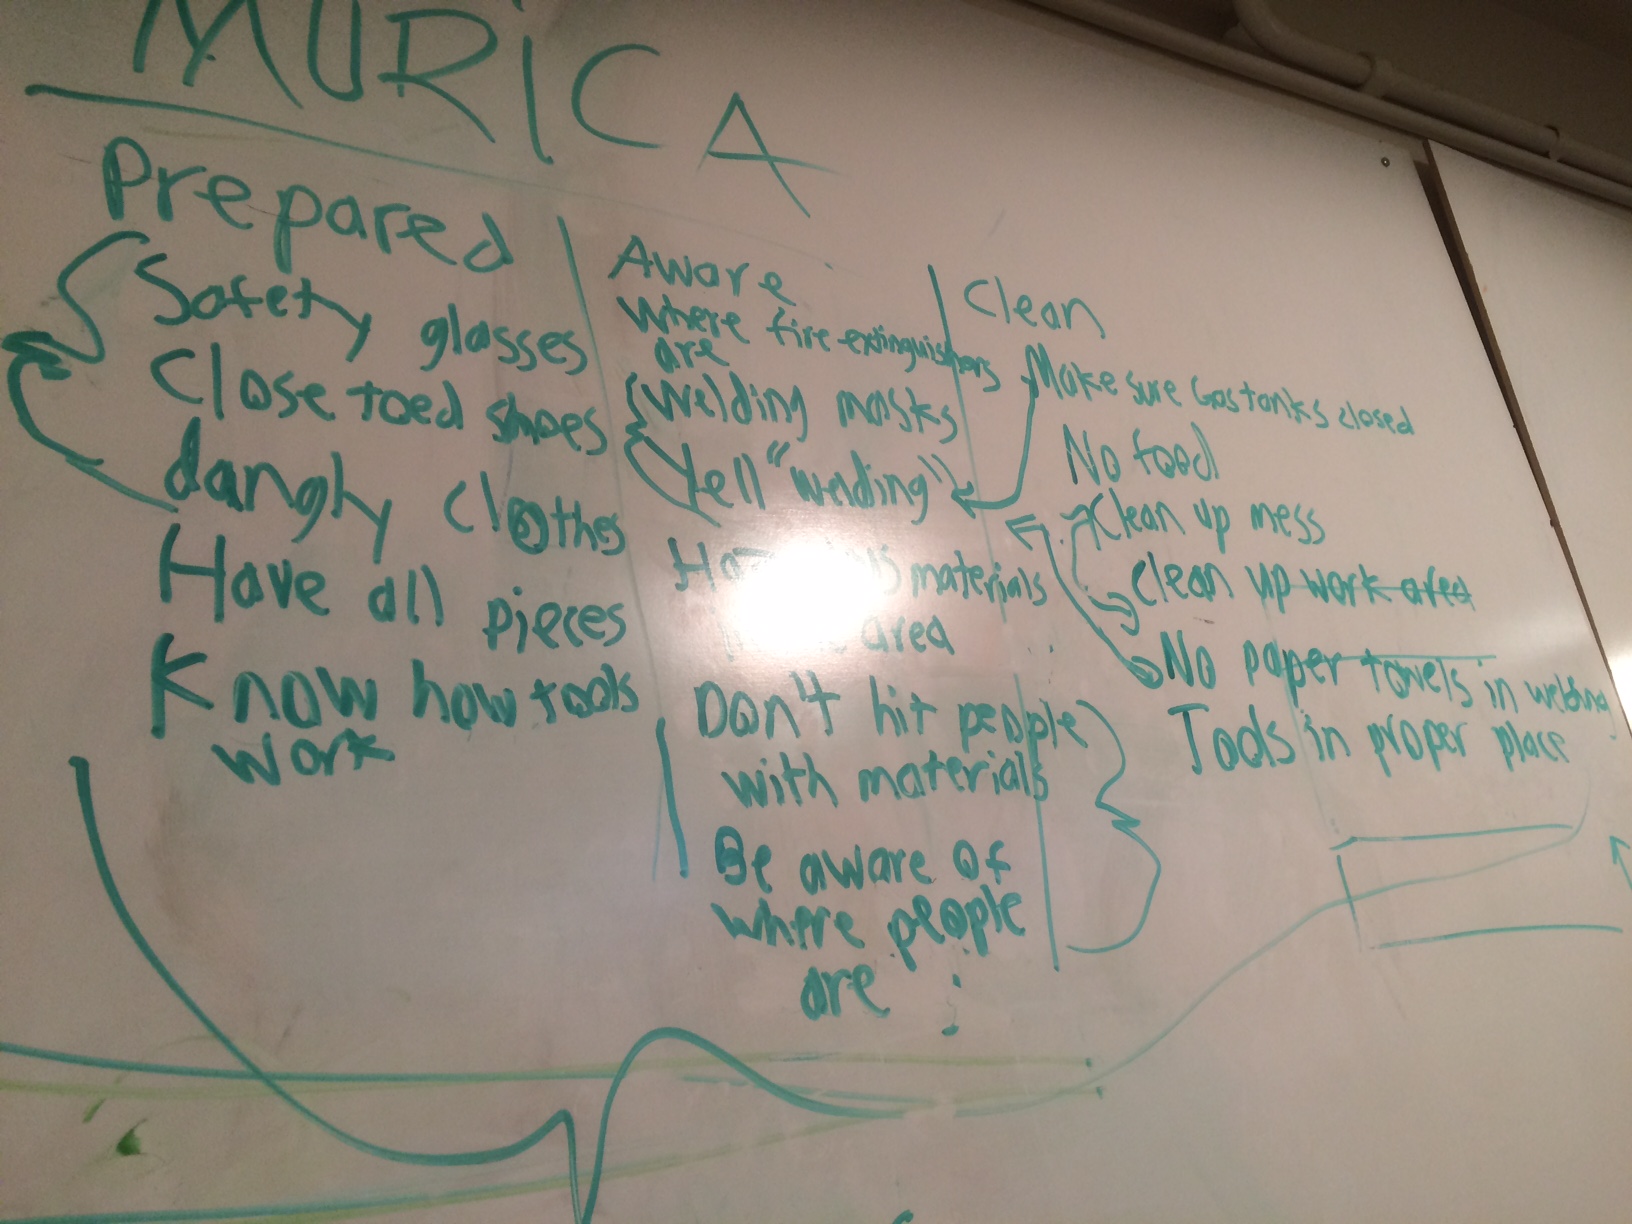 MURICA
Prepared
Safety glasses
Close toed shoes
dangly clothes
Have all pieces
Know how tools
work
Aware
Where fire extinguishers
are
Welding masks
Yell "welding"
materials
area
Don't hit people
with materials
Be aware of
where people
are
Clean
Make sure Gas tanks closed
No food
Clean up mess
Clean up work area
No paper towels in welding
Tools in proper place